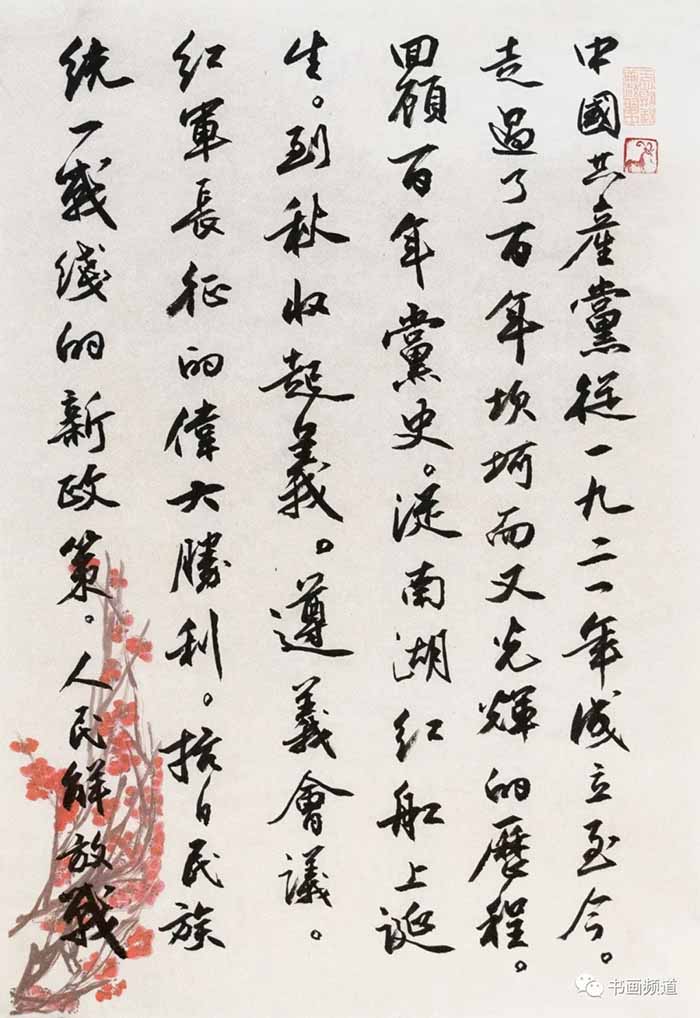 中國共産黨從一九二一年成立至今。
走過了百年坎坷而又光輝的歷程。
回顧百年黨史。從南湖红船上誕
生。到秋收起義。遵義會議。
红軍長征的偉大勝利。抗日民族
统一战綫的新政策。人民解放战
书画频道